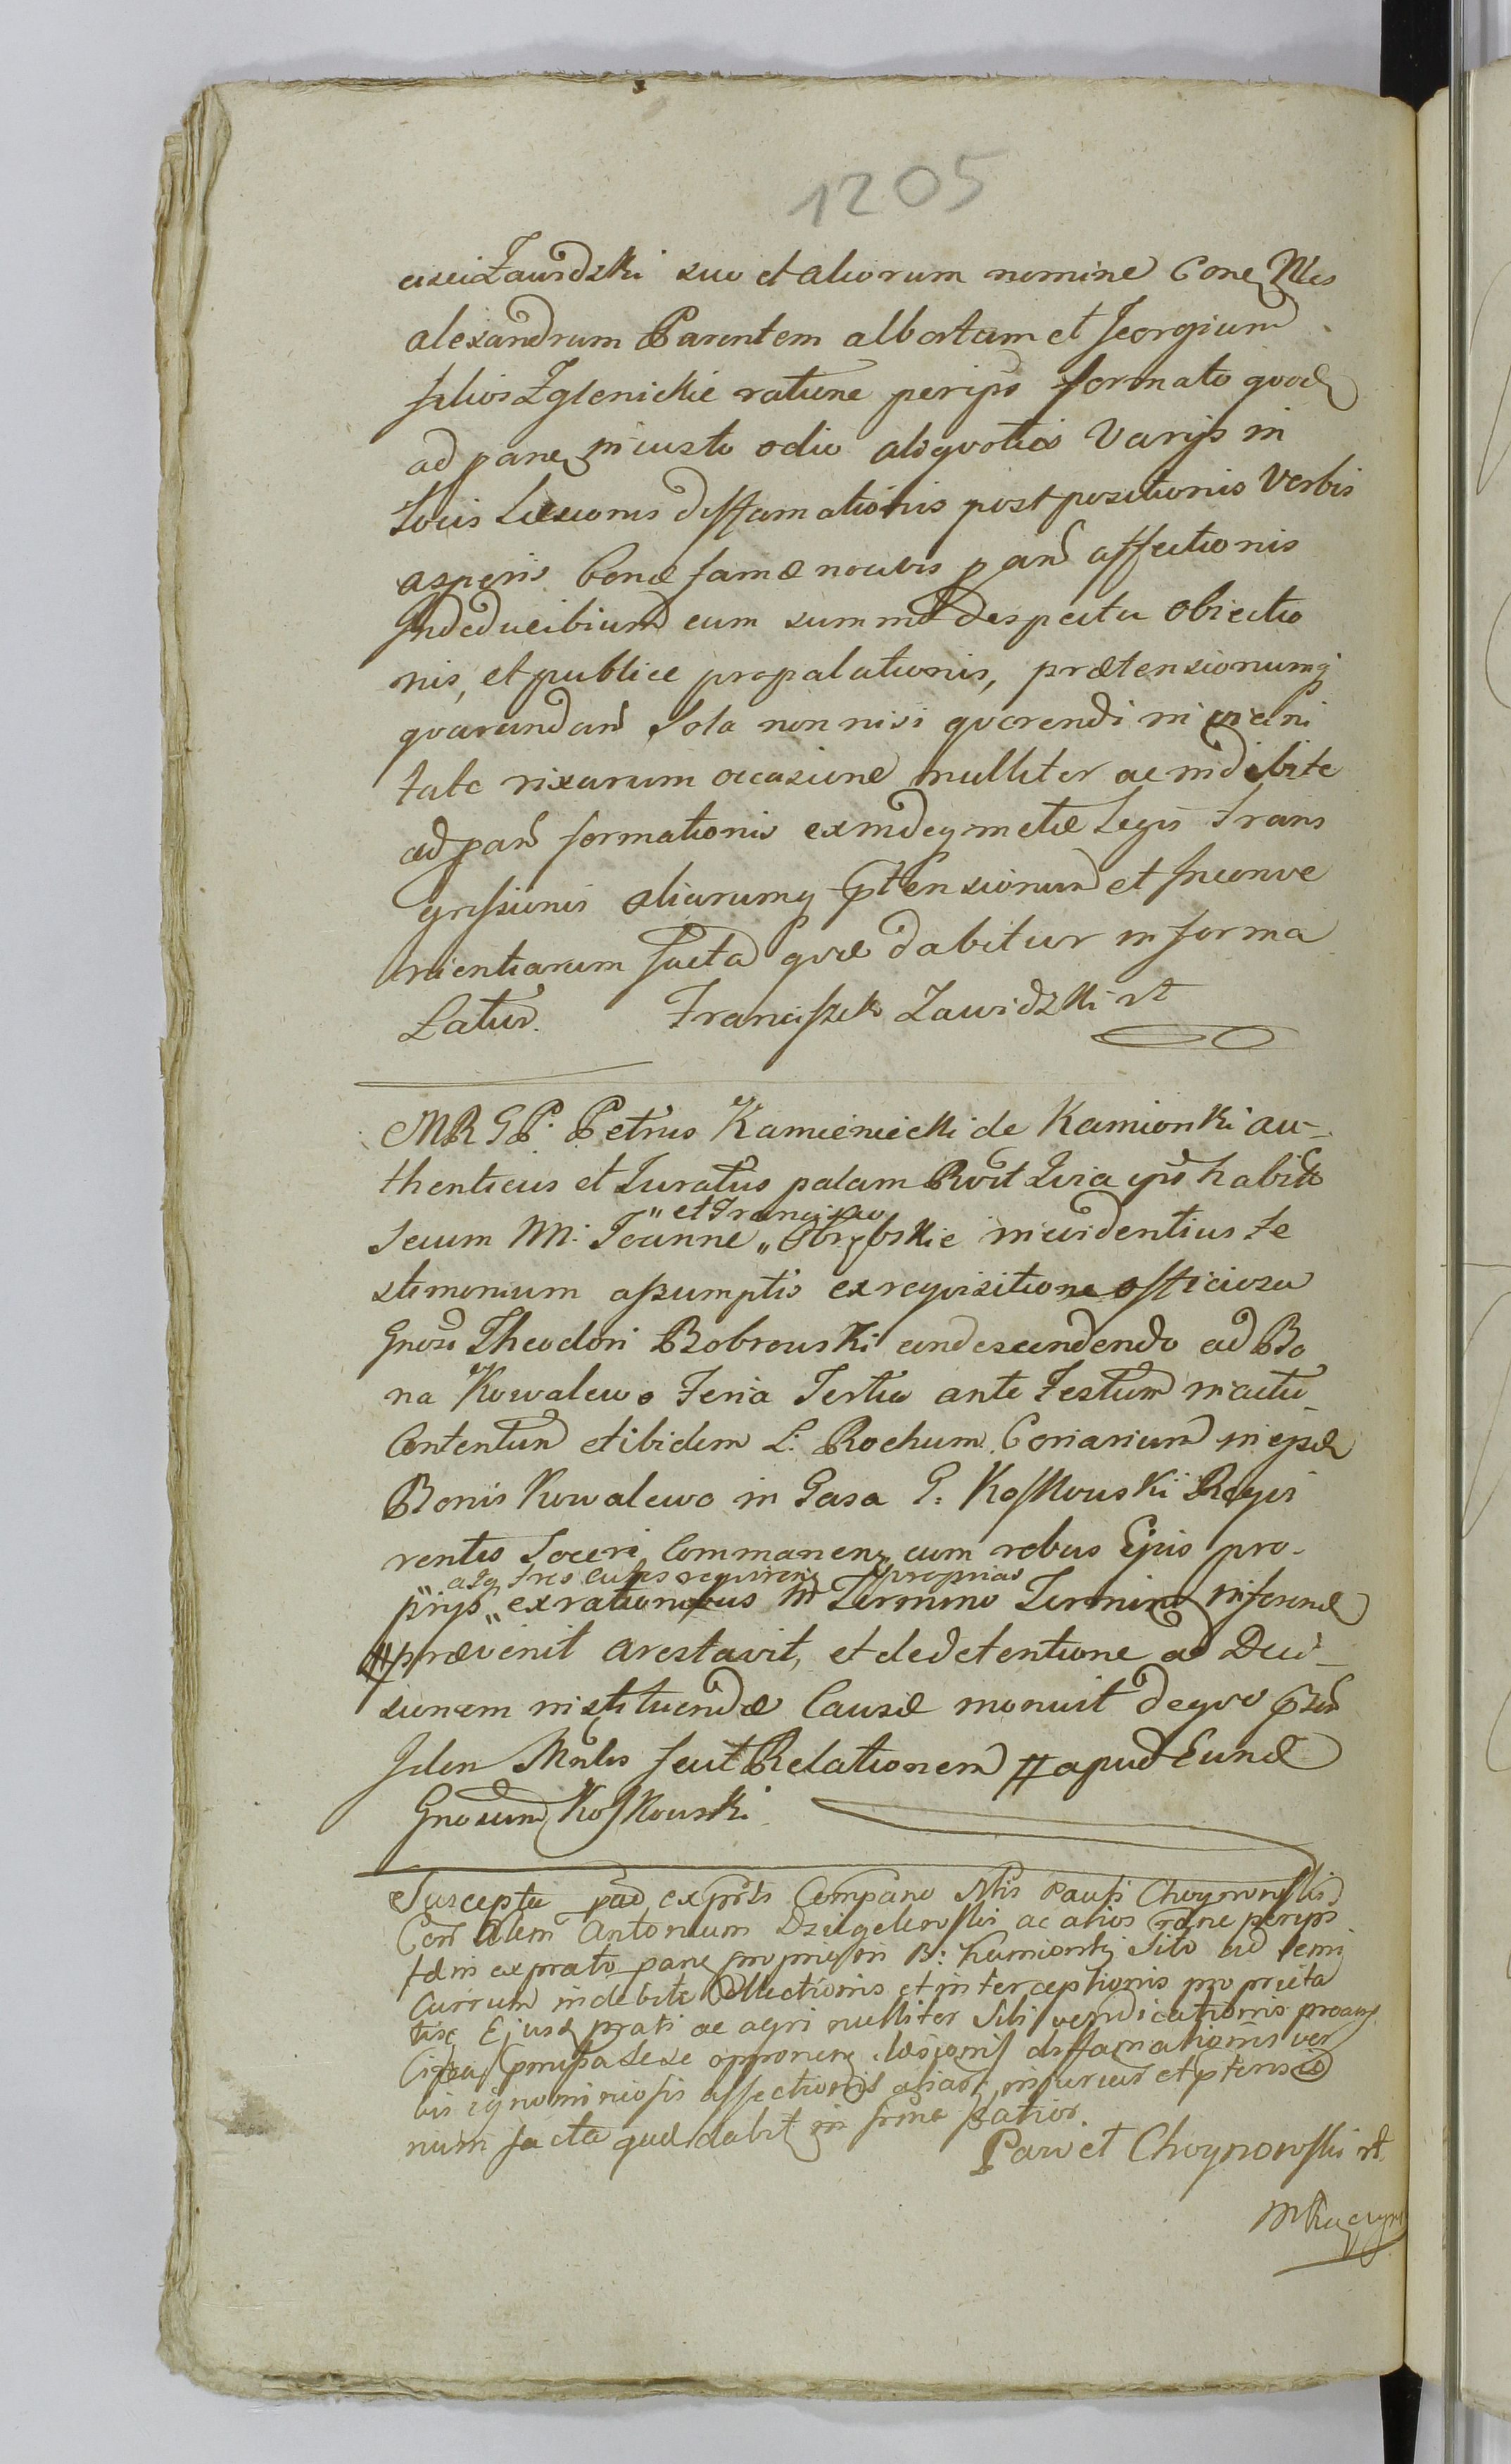 1205
cisci Zawidzki suo et aliorum nomine Conq Nles
alexandrum Parentem albertum et Jeorgium
filios Zglenickie ratione peripś formato quod
ad paneq iniusto odio aliquoties Varijs in
Locis Læsionis diffamationis postpositionis Verbis
asperis bonæ famæ nocivis p and affectionis
Indeducibium cum summo despectu obiectio
nis, et publice propalationis, prætensionumq
quarundam Sola non nisi quærendi in vicini
tate rixarum occasione nulliter ac indebite
ad pań formationis exindeq metæ Legis trans
gressionis aliarumq Ptensionum et Inconve
nientiarum facta quæ dabitur in forma
Latiur. Franciszek Zawidzki rt
MRGP. Petrus Kamieniecki de Kamionki au-
thenticus et Juratus palam Rvit Quia ipś habitis
" et Francisco
secum M: Joanne „ Obrębskie in evidentius te
stimonium assumptis ex requisitione officiosa
Gnosi Theodori Bobrowski condescendendo ad Bo
na Kowalewo Feria Tertia ante Festum in actu
Contentum et ibidem L. Rochum Coriarium in ejsd
Bonis Kowalewo in Casa G. Koskowski Requi
rentis Soceri Commanenq cum rebus Ejus pro-
" atq tres cutes requirenq proprias
prijs „ ex rationibus in Termino Termino inferend
# prævenit arestavit, et de detentione ad Deci-
sionem instituendæ Causæ monuit de quo pśen
Iden Mnlis fecit Relationem # apud Eund
Gnosum Koskowski
Suscepta pad ex pśtis Compano Nlis Pauli Choynowski
Con Nlem Antonium Dzięgelewski ac alios rone peripś
fd in ex prato paneq proprio in B: Kamionki Sito ad semi
Currum indebite Collectionis et interceptionis proprieta
tisq Ejusd prati ac agri nulliter Sibi vendicationis proanq
Circa præmissa sese opponenq læsionis diffamationis ver
bis ignominiosis affectionis aliar injuriar et ptensio
num facta quæ dabit in frma Latior.
Paweł Choynowski rt